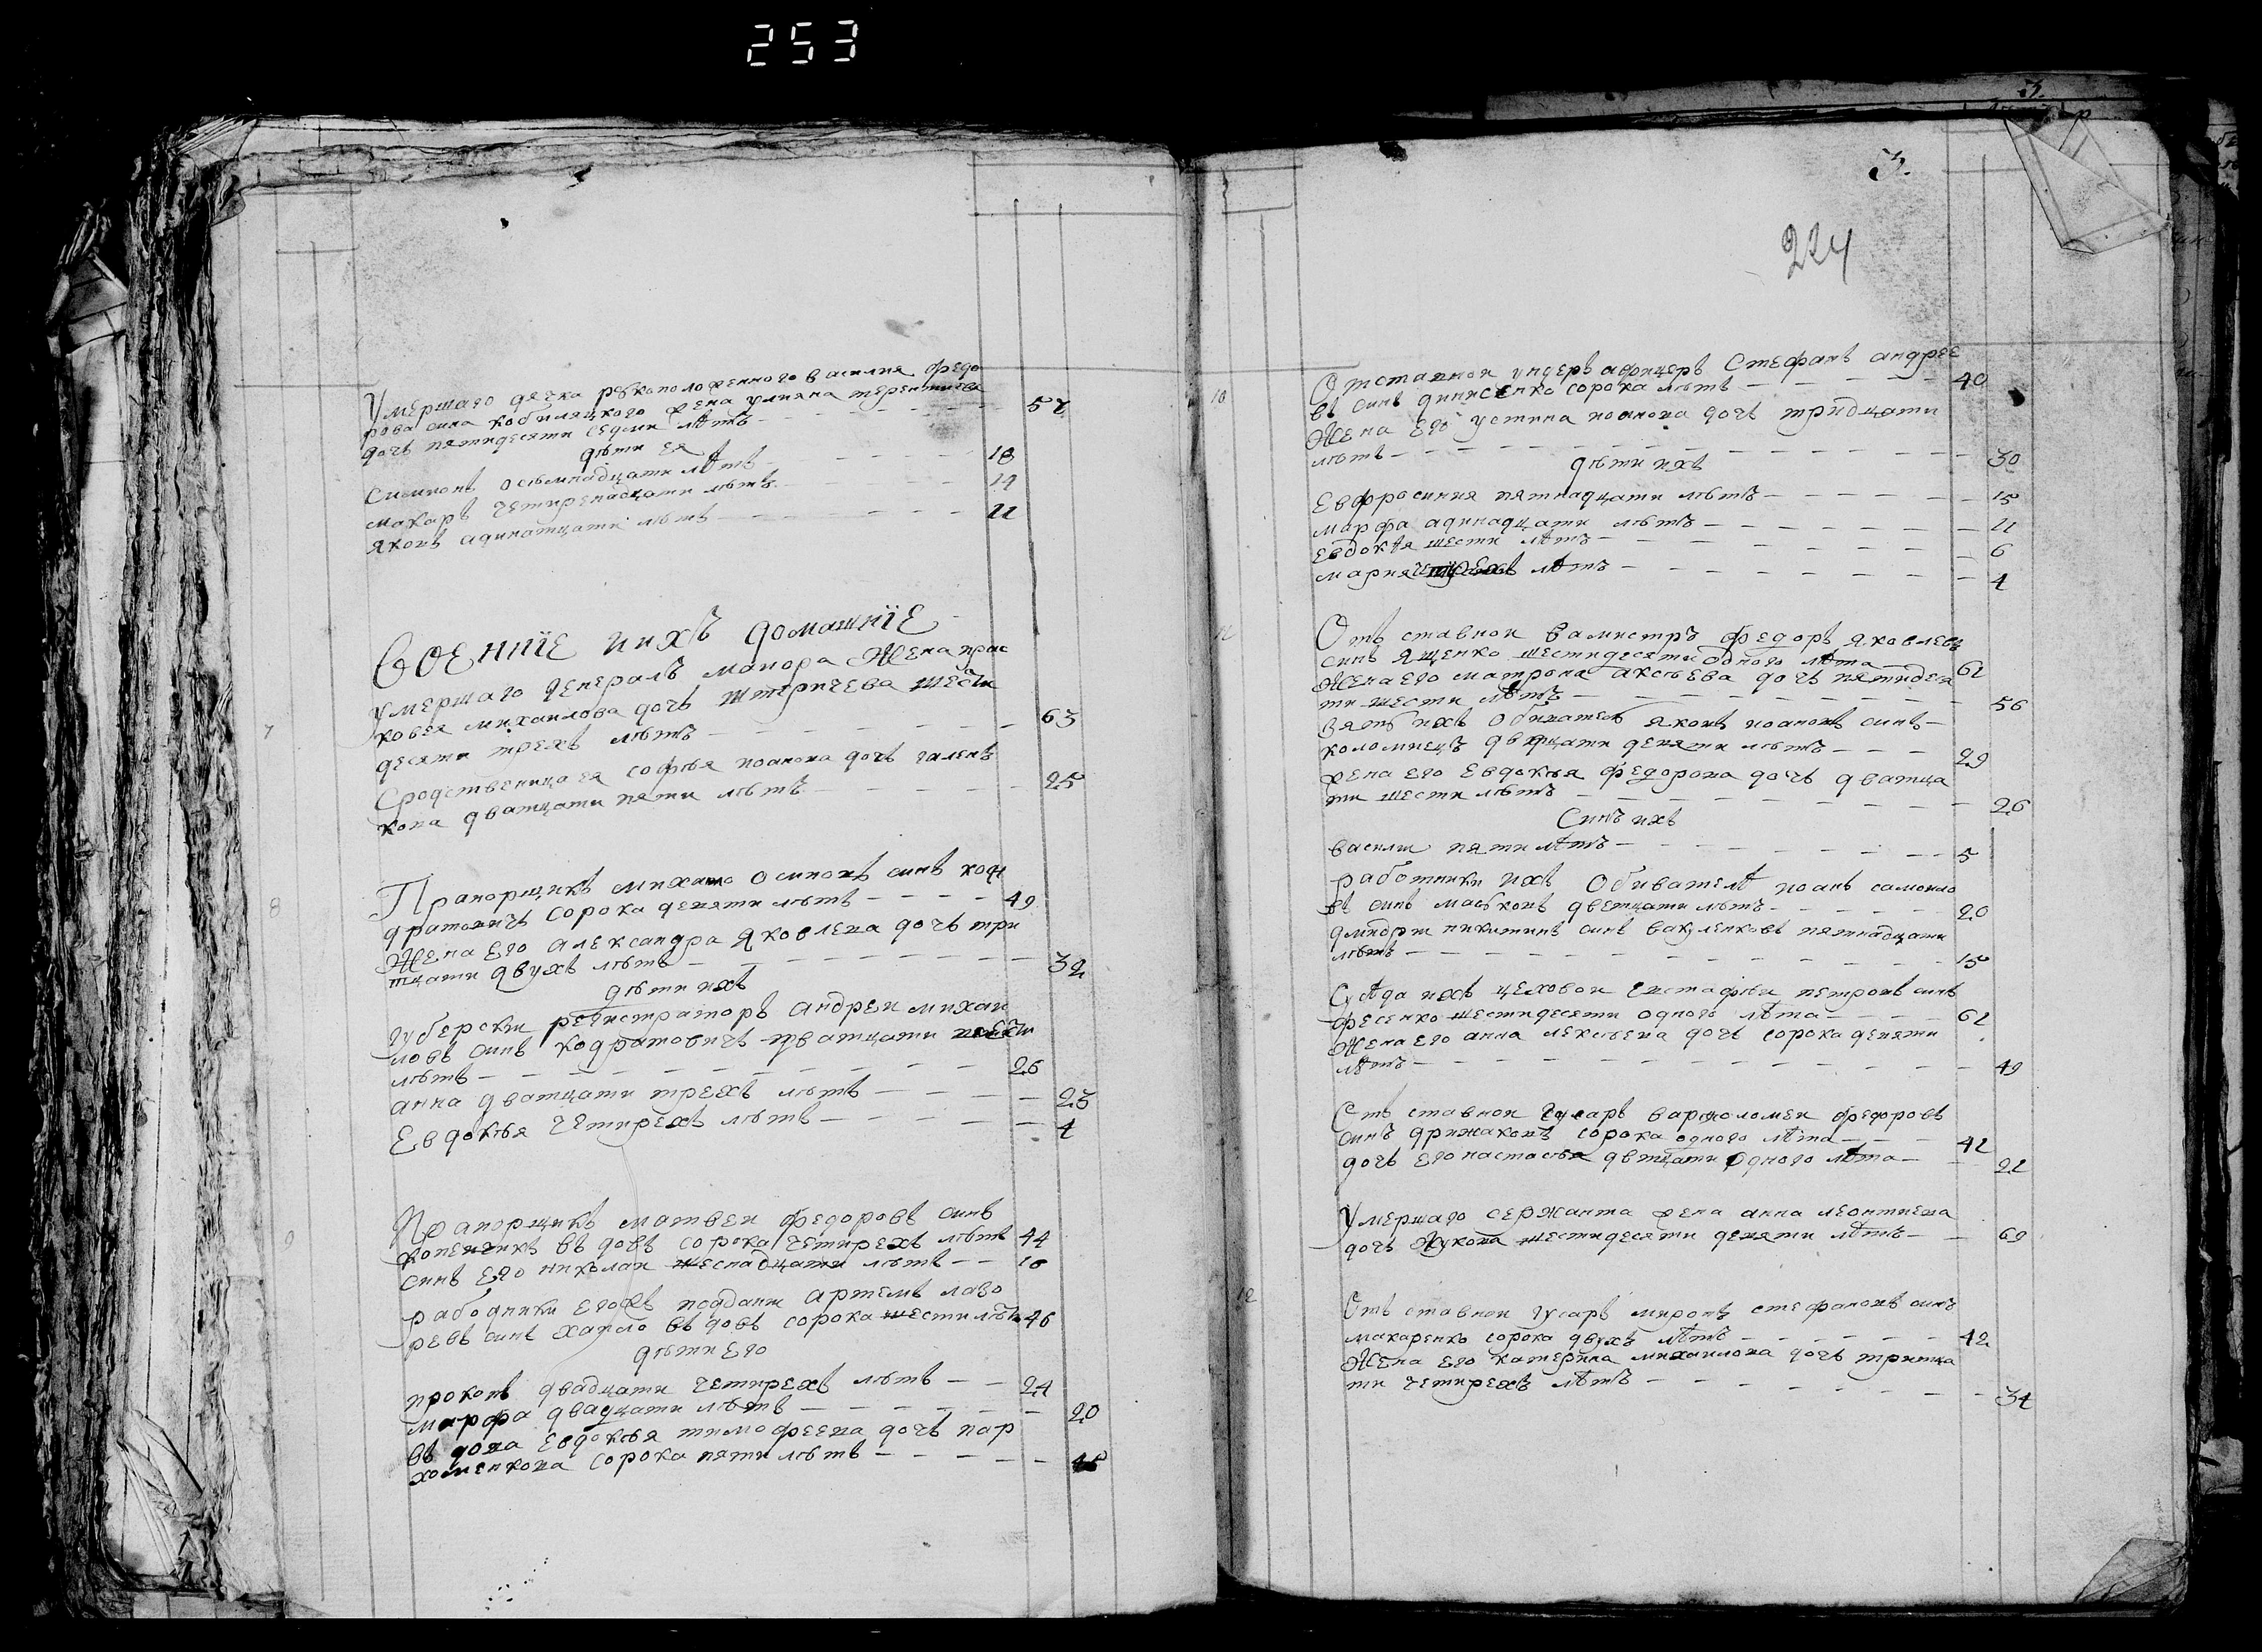 253
Умершаго дячка рукоположенного василия федо
рова сина кобиляцкого жена улияна терентиева
дочь пятидесяти седми летъ 57
дети ея
Симионъ осьмнадцати летъ 18
макаръ четиренадцати летъ 14
Яковъ адинатцати летъ 11
Военніе ихъ домашніе
7
умершаго генералъ маиора Жена прас
ковея михаилова дочь штеричева шести
десяти трехъ летъ 63
Сродственица ея софья иоанова дочь
кова дватцати пяти летъ 25
8
Прапорщикъ михаило осиповъ синъ кон
дратовичъ сорока девяти летъ 49
Жена его александра Яковлева дочь три
тцати двухъ летъ 32
дети ихъ
губерски регистраторъ андреи михаи
ловъ синъ кодратовичъ дватцати шести
летъ 26
анна дватцати трехъ летъ 23
Евдокъя четирехъ летъ 4
9
Прапорщикъ матвеи федоровъ синъ
въ довъ сорока четирехъ летъ 44
синъ его николаи шеснадцати летъ 16
работники его подданы артемъ лазо
ревъ синъ въ довъ сорока шести летъ 46
дети его
прокопъ двадцати четирехъ летъ 24
марфа двадцати летъ 20
въдова Евдокъя тимофеева дочь пар
хоменкова сорока пяти летъ 45
3.
224
10
Отставнои ундеръ афицеръ Стефанъ андрее
въ синъ динисенко сорока летъ 40
Жена Его устина иоанова дочь тридцати
летъ 30
дети ихъ
Евфросиния пятнадцати летъ 15
марфа адинадцати летъ 11
евдокѣя шести лѣтъ 6
мария лѣтъ 4
11
Отъ ставнои вамистръ федоръ Яковлевъ
синъ Ященко шестидесяти одного лѣта 61
Жена его матрона аксѣева дочь пятидеся
ти шести лѣтъ 56
Зять ихъ обиватель яковъ иоановъ синъ
коломиецъ двадцати девяти летъ 29
жена его Евдокея федорова дочь дватца
ти шести летъ 26
Синъ ихъ
василии пяти лѣтъ 5
работники ихъ Обивателѣ иоанъ самоило
въ синъ двѣтцати летъ 20
дмидрии никитинъ синъ вакуленковъ пятнадцати
летъ 15
Сусѣда ихъ цеховои естафеи петровъ синъ
фесенко шестидесяти одного лѣта 61
Жена его анна лексеева дочь сорока девяти
лѣтъ 49
Отъ ставнои гусаръ вартоломеи федоровъ
синъ дрижаковъ сорока одного лѣта 41
дочь его настасъя дватцати одного лѣта 21
Умершаго сержанта жена анна леонтиева
дочь Жукова шестидесяти девяти лѣтъ 69
12
Отъ ставнои гусаръ миронъ стефановъ синъ
макаренко сорока двухъ лѣтъ 42
Жена Его катерина михаилова дочь тритца
ти четирехъ лѣтъ 34